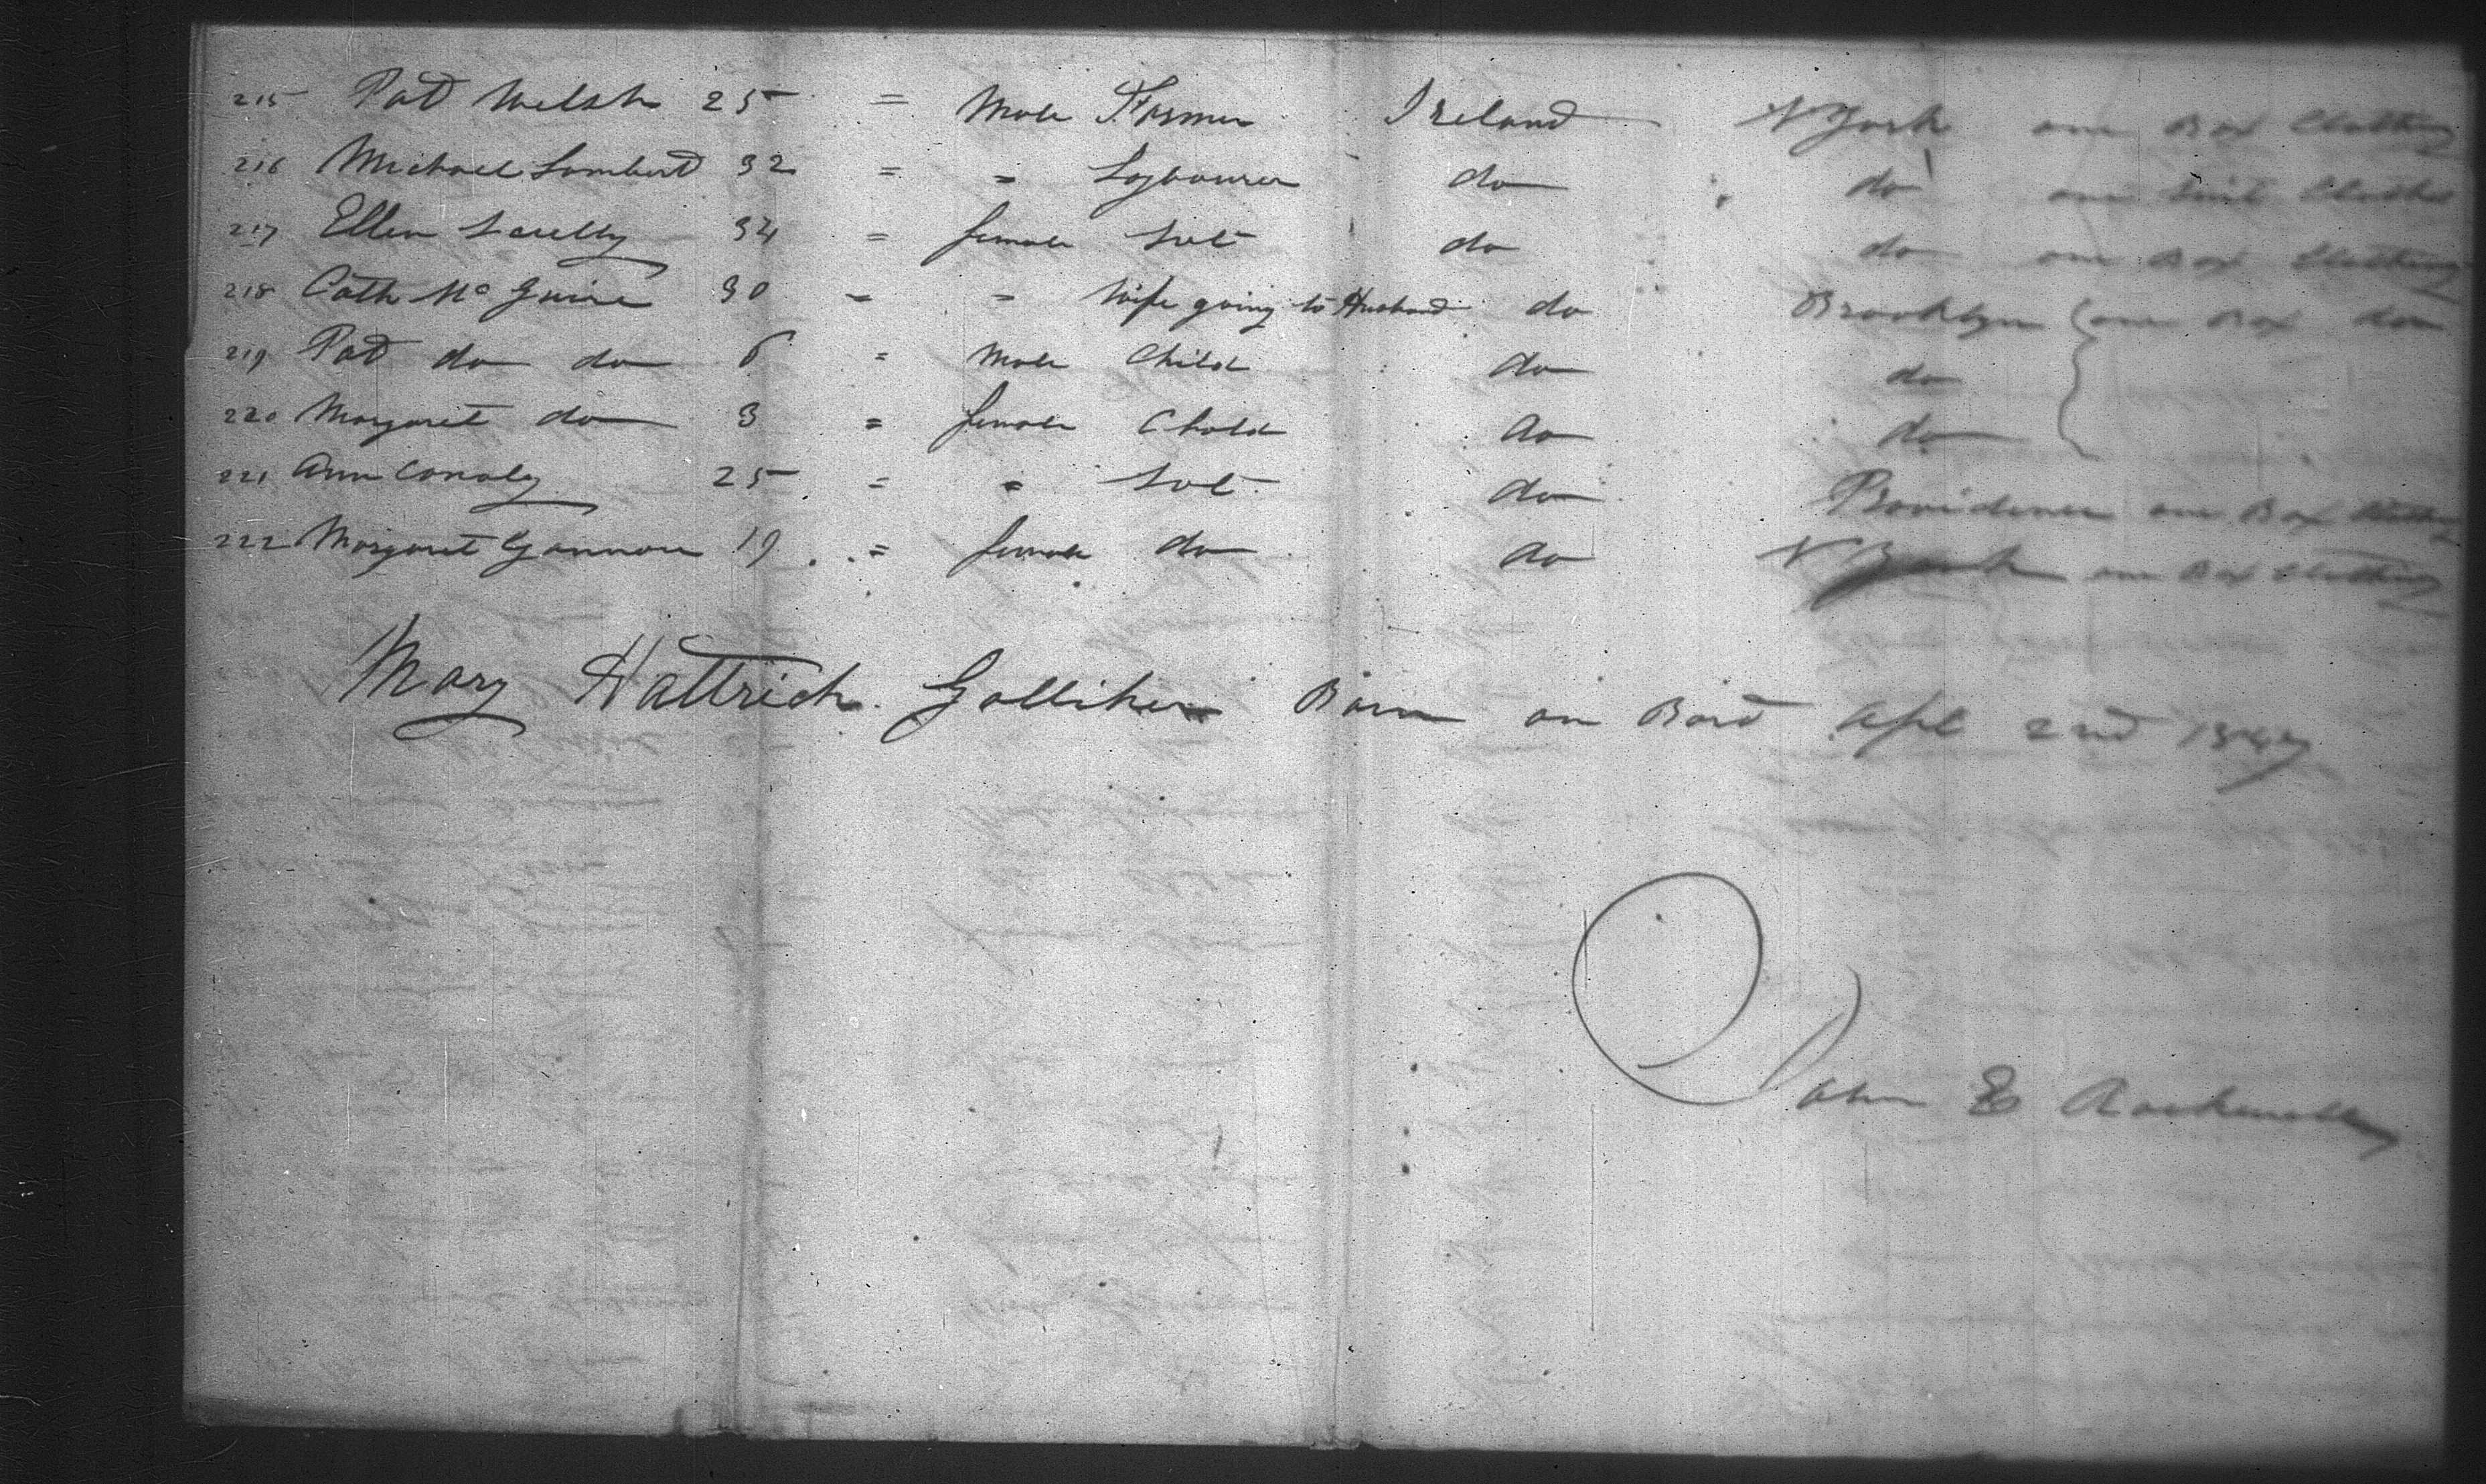 215 Pat Welsh 25 = Male Farmer Ireland N York one Box Clothing
216 Michael Lambert 32 = = Laybourer do do one Suit Clothes
217 Ellen Scully 34 = female Svt do do one Box Clothing
218 Cath McGuire 30 = = Wife going to Husband do Brooklyn one Box do
219 Pat do do 6 = Male Child do do
220 Margaret do 3 = female Child do do
221 Ann Conoly 25 = = Svt do Providence one Box Clothing
222 Margaret Gannon 19 = female do do N York one Box Clothing
Mary Hattrich Golliher Born on Bord Apl 2nd 1847
John E